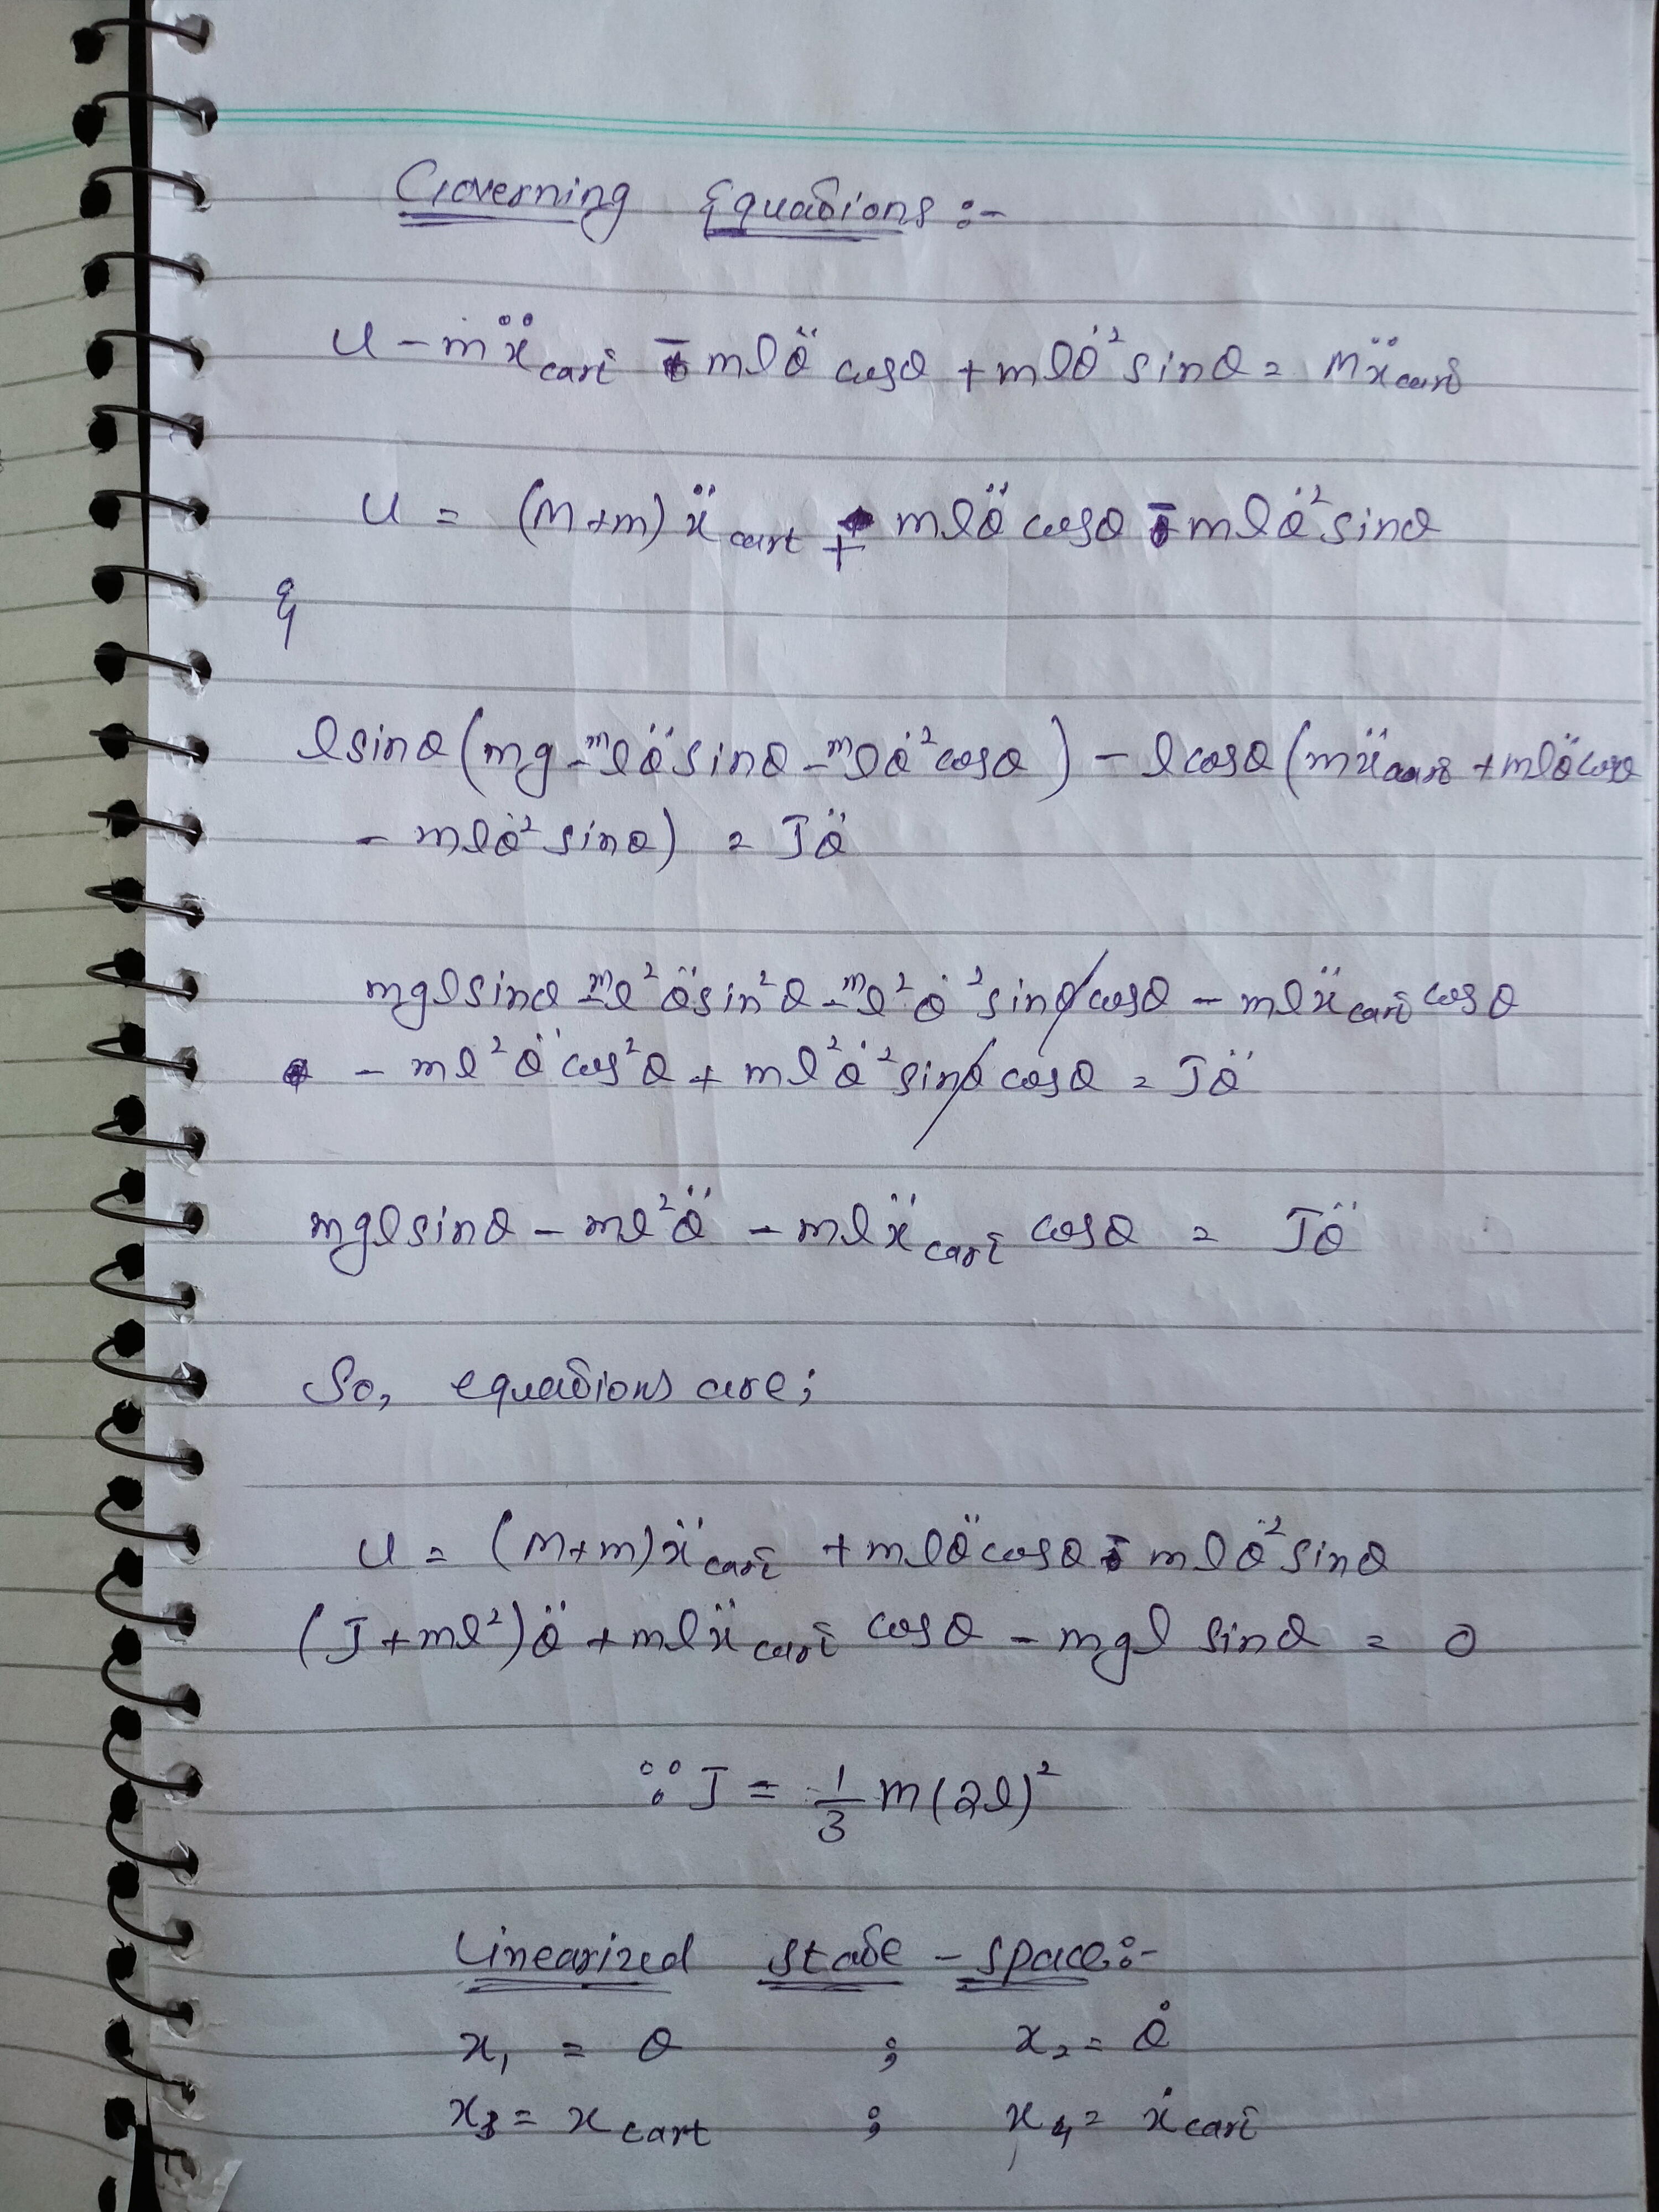 Governing Equations :-
u - mẍcart - mlθ̈ cosθ + mlθ̇² sinθ = Mẍcart
u = (M+m) ẍcart + mlθ̈ cosθ - mlθ̇² sinθ
&
l sinθ (mg - mlθ̈ sinθ - mlθ̇² cosθ) - l cosθ (mẍcart + mlθ̈ cosθ
- mlθ̇² sinθ) = Jθ̈
mgl sinθ - ml²θ̈ sin²θ - ml²θ̇² sinθ cosθ - mlẍcart cosθ
- ml²θ̈ cos²θ + ml²θ̇² sinθ cosθ = Jθ̈
mgl sinθ - ml²θ̈ - mlẍcart cosθ = Jθ̈
So, equations are;
u = (M+m)ẍcart + mlθ̈ cosθ - mlθ̇² sinθ
(J + ml²)θ̈ + mlẍcart cosθ - mgl sinθ = 0
∵ J = 1/3 m(2l)²
Linearized state - space :-
x₁ = θ ; x₂ = θ̇
x₃ = xcart ; x₄ = ẋcart